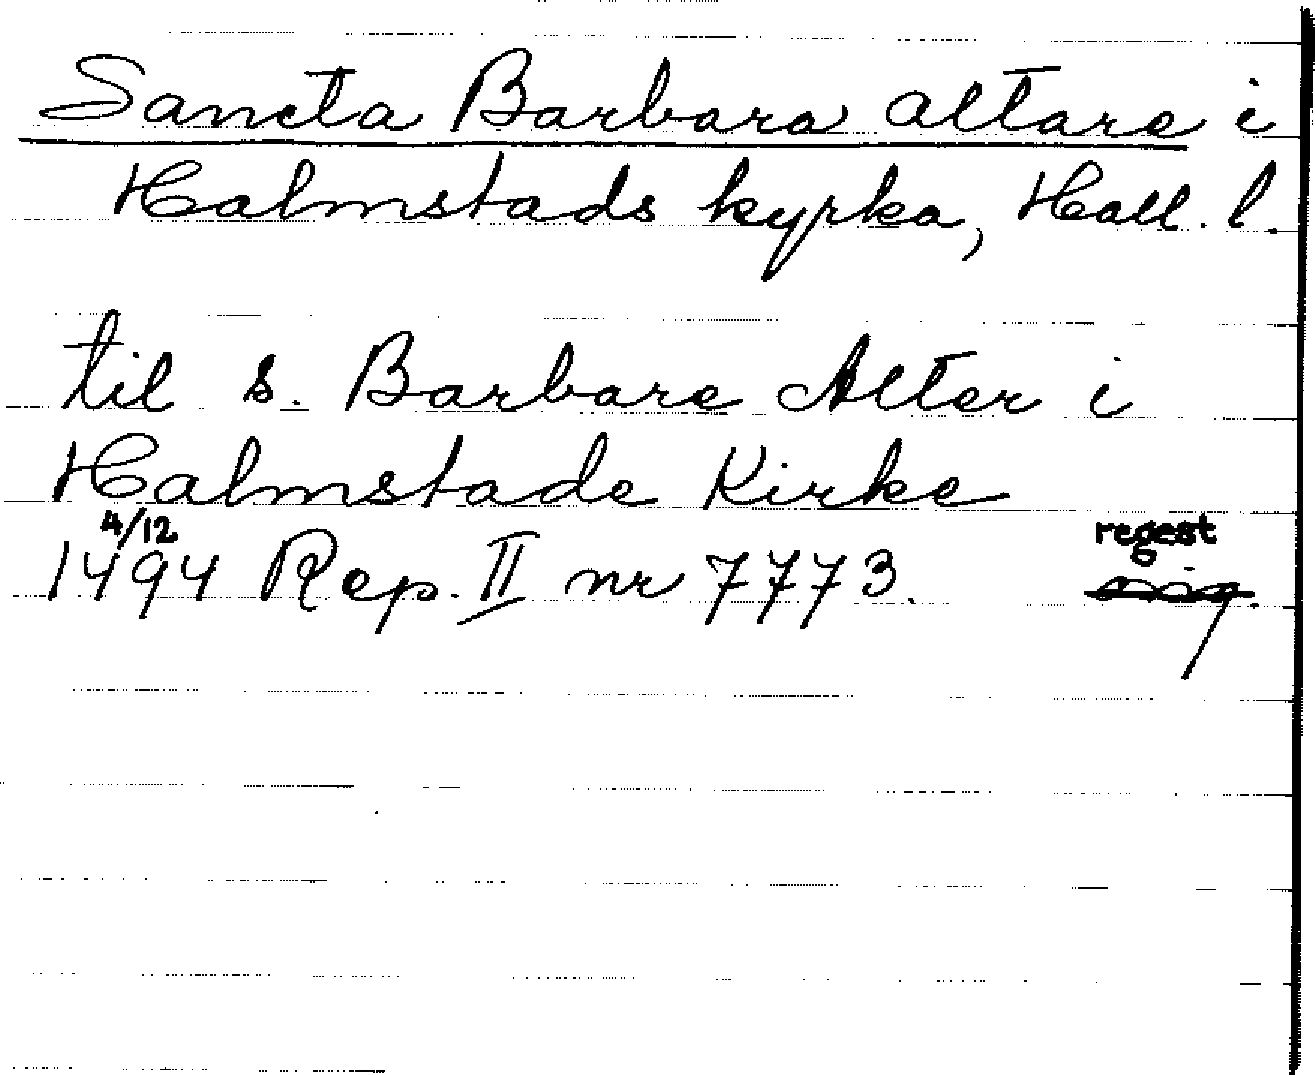 Sancta Barbara altare i
Halmstads kyrka, Hall. l.
til s. Barbare Alter i
Halmstade Kirke
4/12
1494 Rep. II nr 7773.
regest